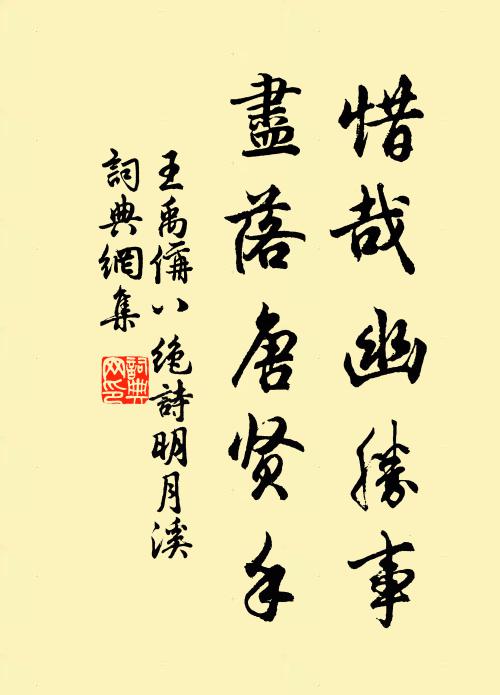 惜哉幽勝事
盡落唐贤手
王禹偁八绝詩明月溪
詞典網集
詞典网印